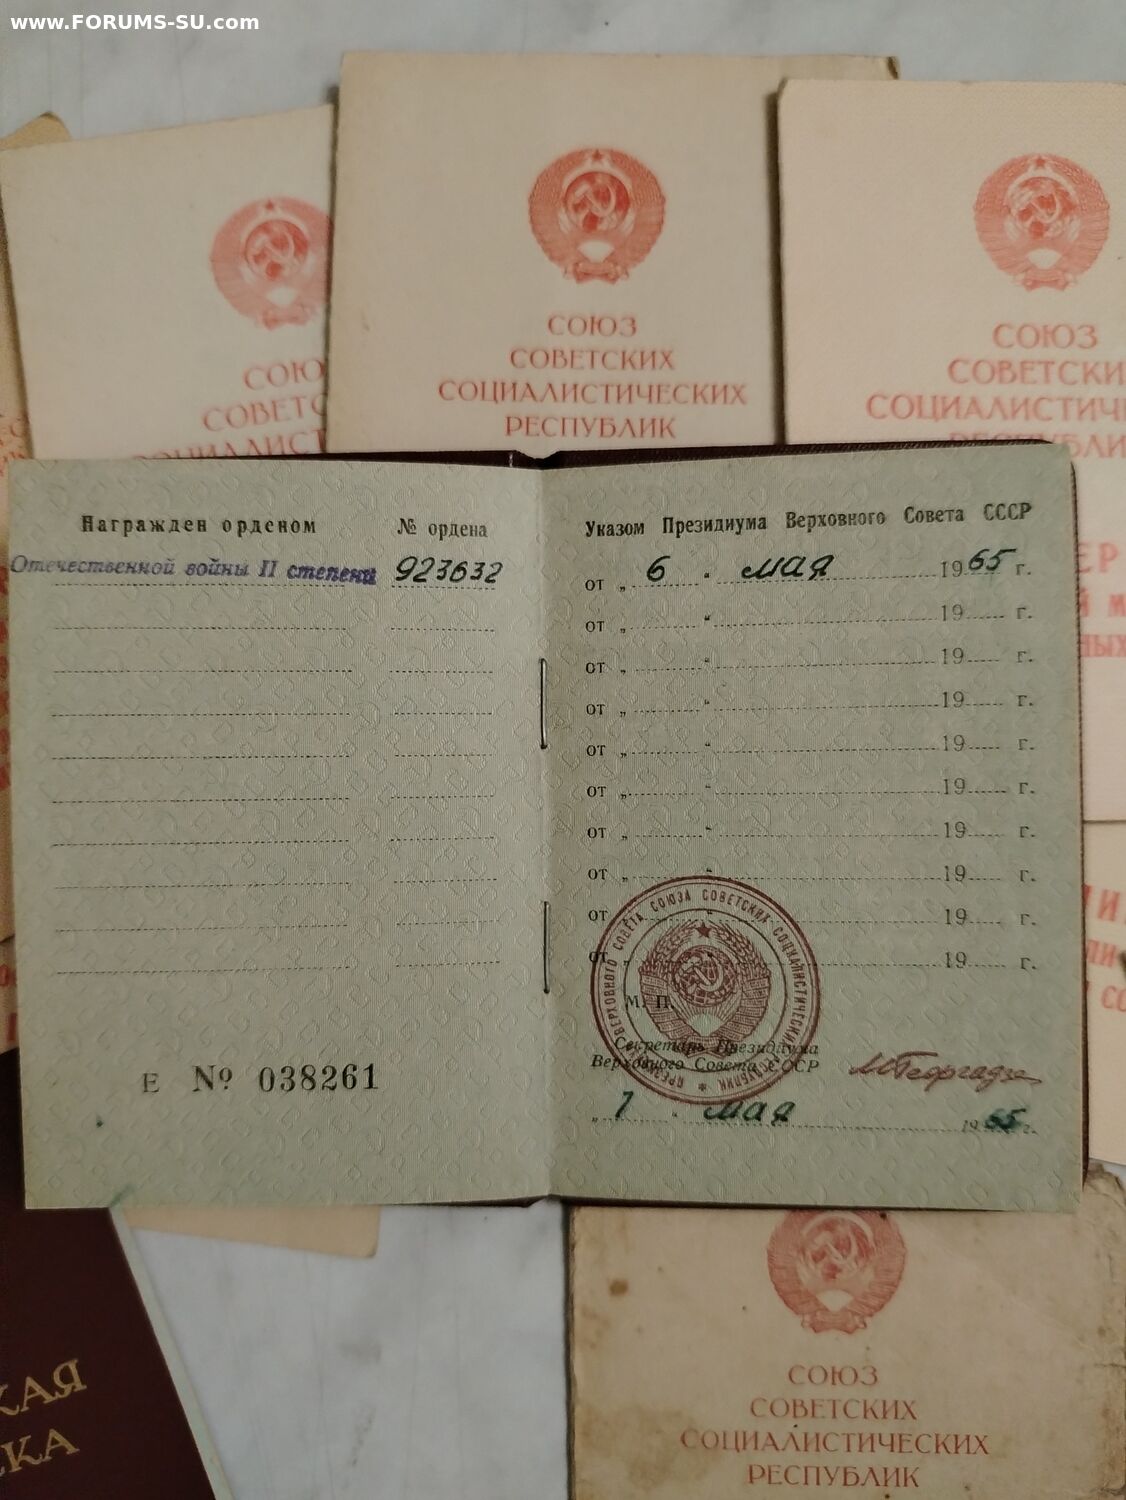 www.FORUMS-SU.com
СОЮЗ
СОВЕТСКИХ
СОЦИАЛИСТИЧЕСКИХ
РЕСПУБЛИК
СОЮ
СОВЕТС
СОЦИАЛИСТ
СОЮЗ
СОВЕТСКИ
СОЦИАЛИСТИЧЕ
РЕСПУБЛИ
Награжден орденом № ордена
Отечественной войны II степени 923632
Е № 038261
Указом Президиума Верховного Совета СССР
от „ 6 “ мая 1965 г.
от „ “ 19 г.
от „ “ 19 г.
от „ “ 19 г.
от „ “ 19 г.
от „ “ 19 г.
от „ “ 19 г.
от „ “ 19 г.
от „ “ 19 г.
от „ “ 19 г.
ПРЕЗИДИУМ ВЕРХОВНОГО СОВЕТА СОЮЗА СОВЕТСКИХ СОЦИАЛИСТИЧЕСКИХ РЕСПУБЛИК
М. П.
Секретарь Президиума
Верховного Совета СССР
МГеоргадзе
„ 7 “ мая 1965 г.
ЕР
Й М
НЫХ
КАЯ
КА
СОЮЗ
СОВЕТСКИХ
СОЦИАЛИСТИЧЕСКИХ
РЕСПУБЛИК